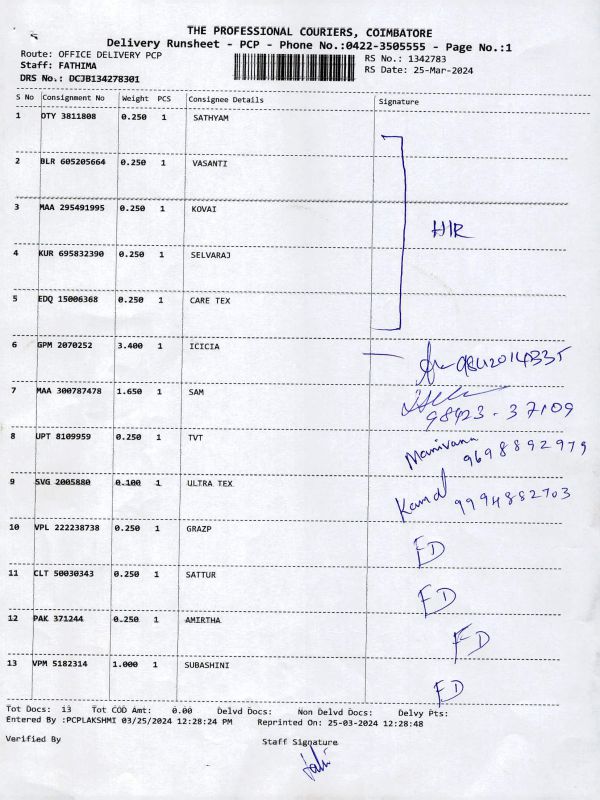 THE PROFESSIONAL COURIERS, COIMBATORE
Delivery Runsheet - PCP - Phone No.:0422-3505555 - Page No.:1
Route: OFFICE DELIVERY PCP RS No.: 1342783
Staff: FATHIMA RS Date: 25-Mar-2024
DRS No.: DCJB134278301
S No Consignment No Weight PCS Consignee Details Signature
1 OTY 3811808 0.250 1 SATHYAM
2 BLR 605205664 0.250 1 VASANTI
3 MAA 295491995 0.250 1 KOVAI
HR
4 KUR 695832390 0.250 1 SELVARAJ
5 EDQ 15006368 0.250 1 CARE TEX
6 GPM 2070252 3.400 1 ICICIA 9842014335
7 MAA 300787478 1.650 1 SAM 98423-37109
8 UPT 8109959 0.250 1 TVT Manivana 9698892979
9 SVG 2005880 0.100 1 ULTRA TEX 9994882703
10 VPL 222238738 0.250 1 GRAZP FD
11 CLT 50030343 0.250 1 SATTUR FD
12 PAK 371244 0.250 1 AMIRTHA FD
13 VPM 5182314 1.000 1 SUBASHINI FD
Tot Docs: 13 Tot COD Amt: 0.00 Delvd Docs: Non Delvd Docs: Delvy Pts:
Entered By :PCPLAKSHMI 03/25/2024 12:28:24 PM Reprinted On: 25-03-2024 12:28:48
Verified By Staff Signature